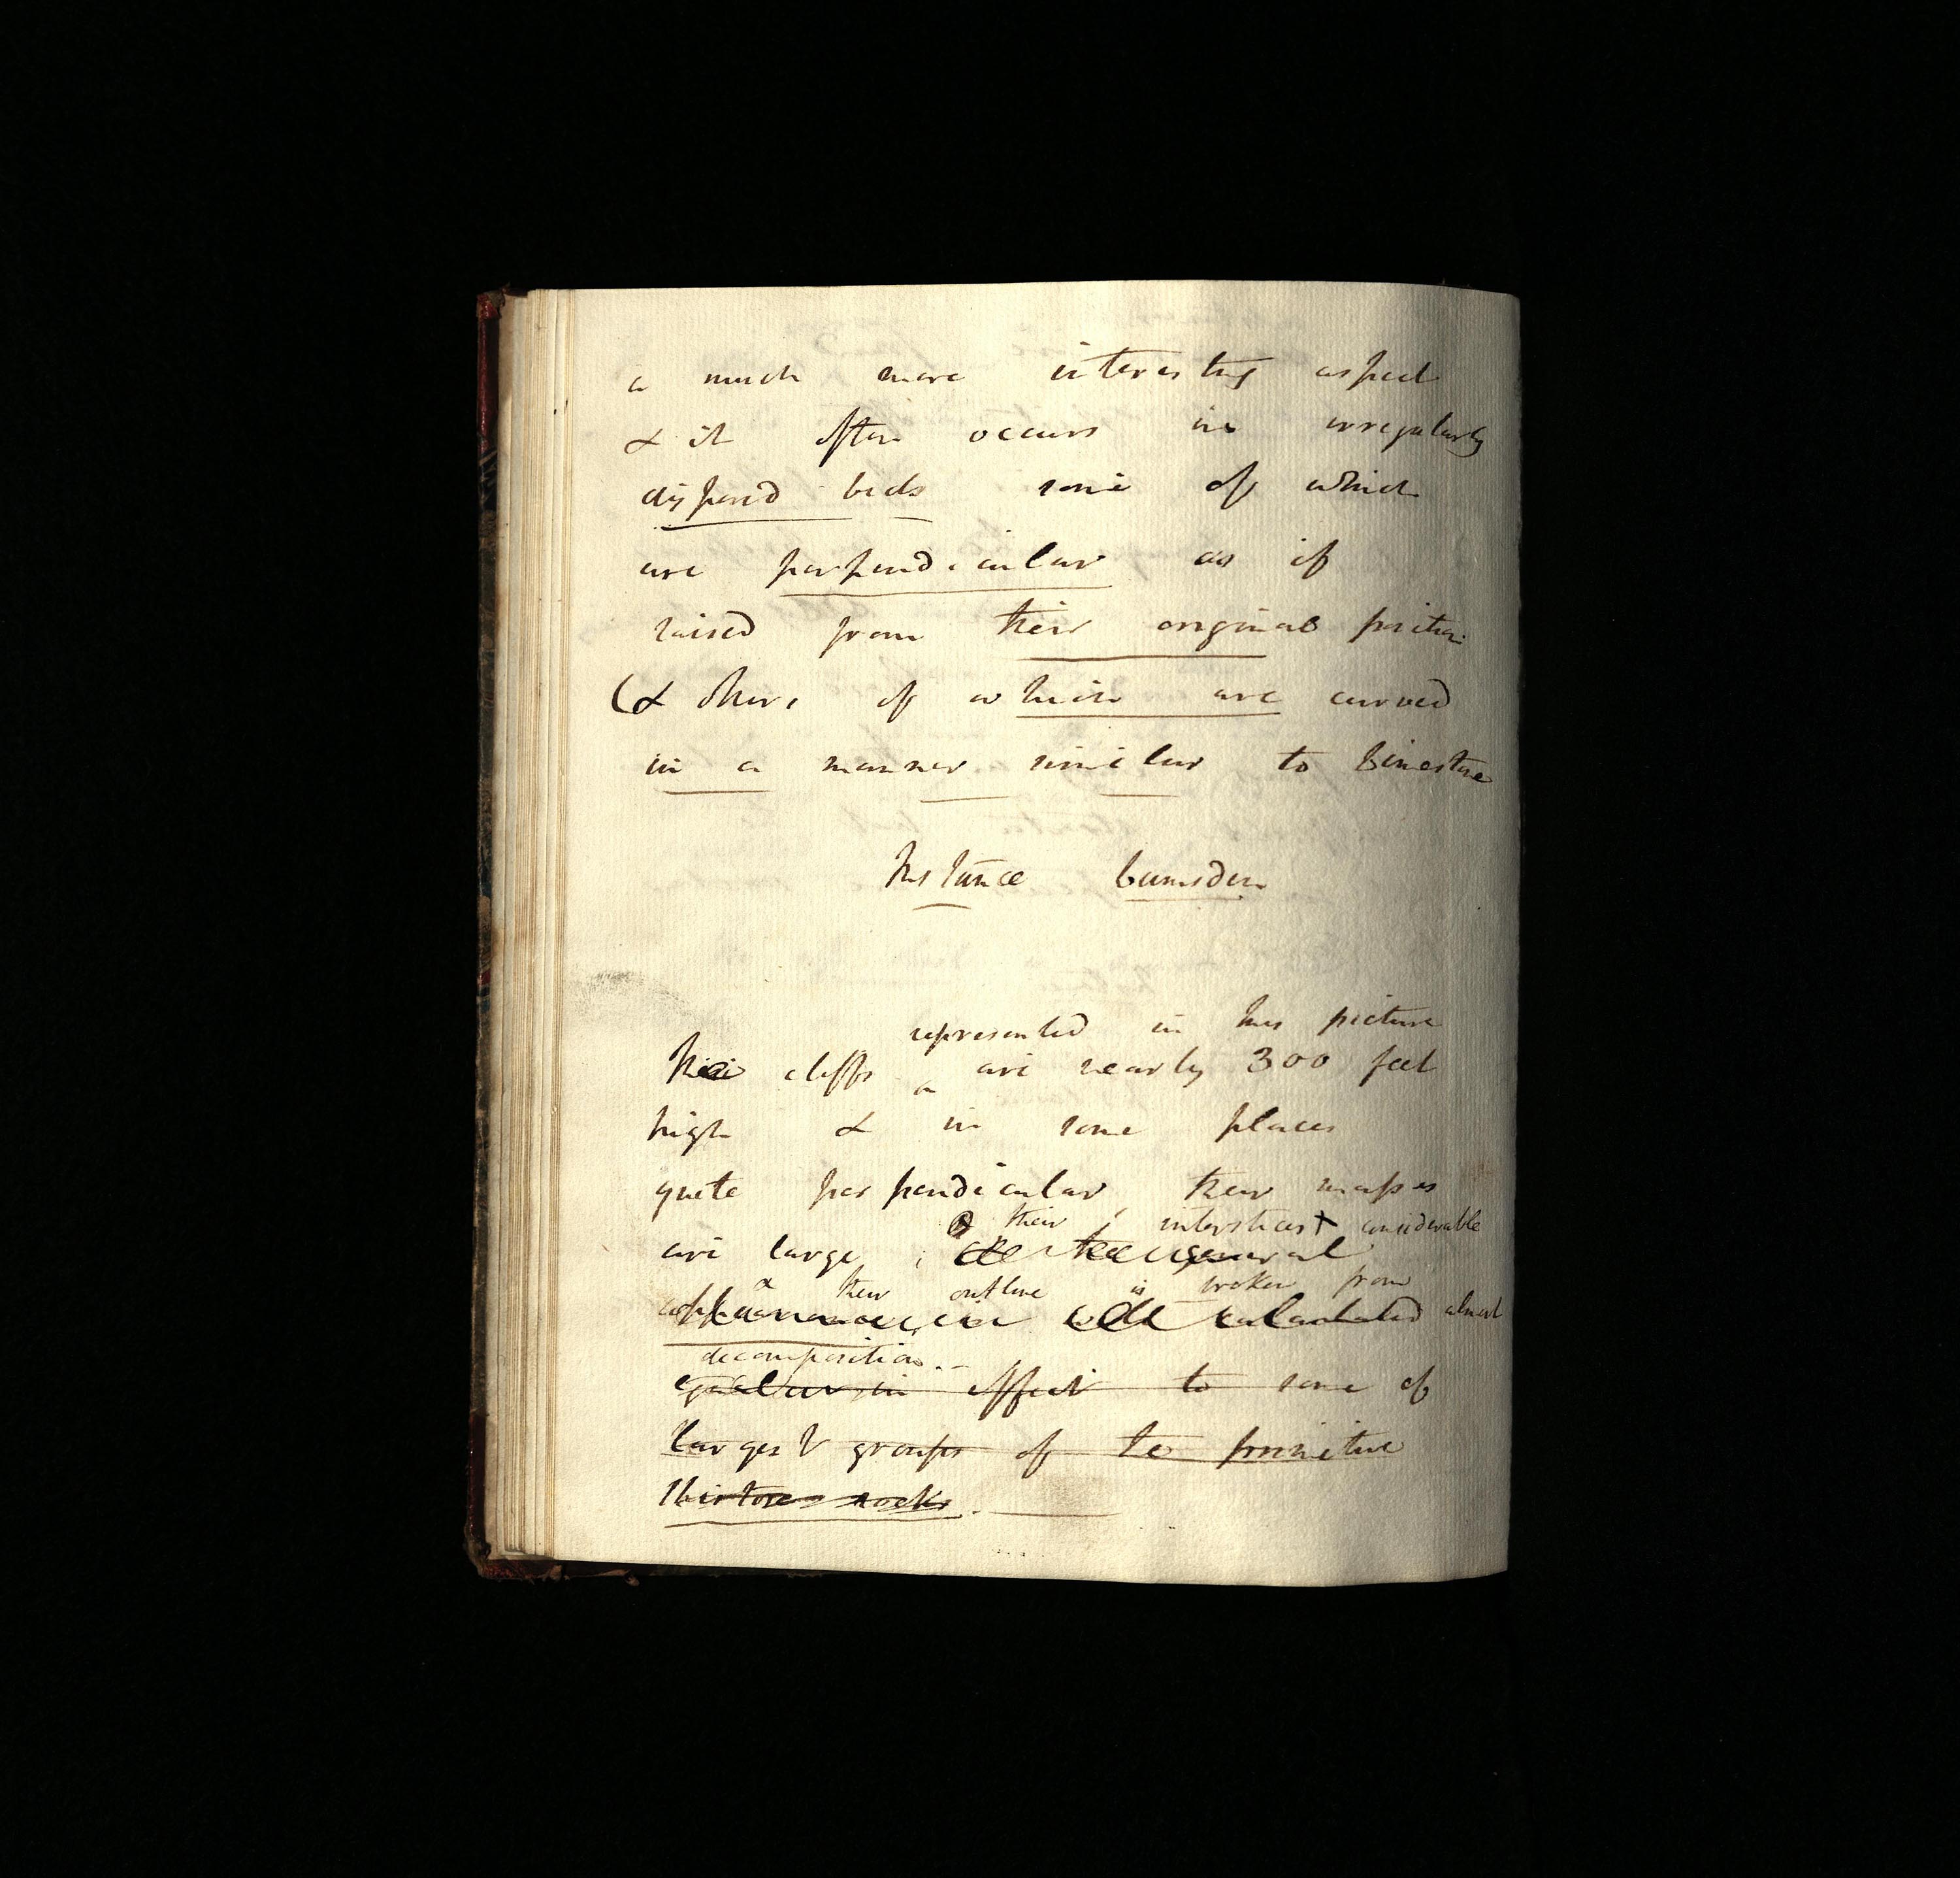 a much more interesting aspect
& it often occurs in irregularly
disposed beds some of which
are perpendicular as if
raised from their original position
(& others of which are curved
in a manner similar to Limestone
Instance
represented in this picture
These cliffs ^ are nearly 300 feet
high & in some places
quite perpendicular their masses
their interstices considerable
are large ; & the general
& their outline is broken from
appearance is well calculated almost
decomposition. –
equal in effect to some of
largest groups of the primitive
schistose rocks.